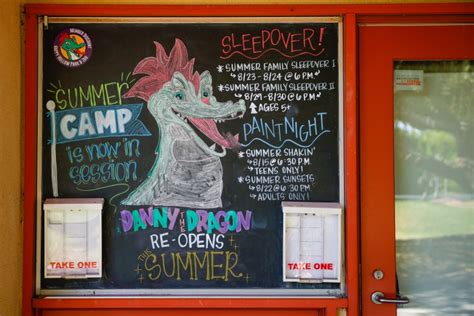 SUMMER
CAMP
is now in
session
SLEEPOVER!
*SUMMER FAMILY SLEEPOVER I
8/23 - 8/24 @ 6 P.M.
*SUMMER FAMILY SLEEPOVER II
8/29 - 8/30 @ 6 P.M.
AGES 5+
PAINT NIGHT
*SUMMER SHAKIN'
8/15 @ 6:30 PM
TEENS ONLY!
*SUMMER SUNSETS
8/22 @ 6:30 PM
ADULTS ONLY!
DANNY THE DRAGON
RE-OPENS
THIS
SUMMER
TAKE ONE
TAKE ONE